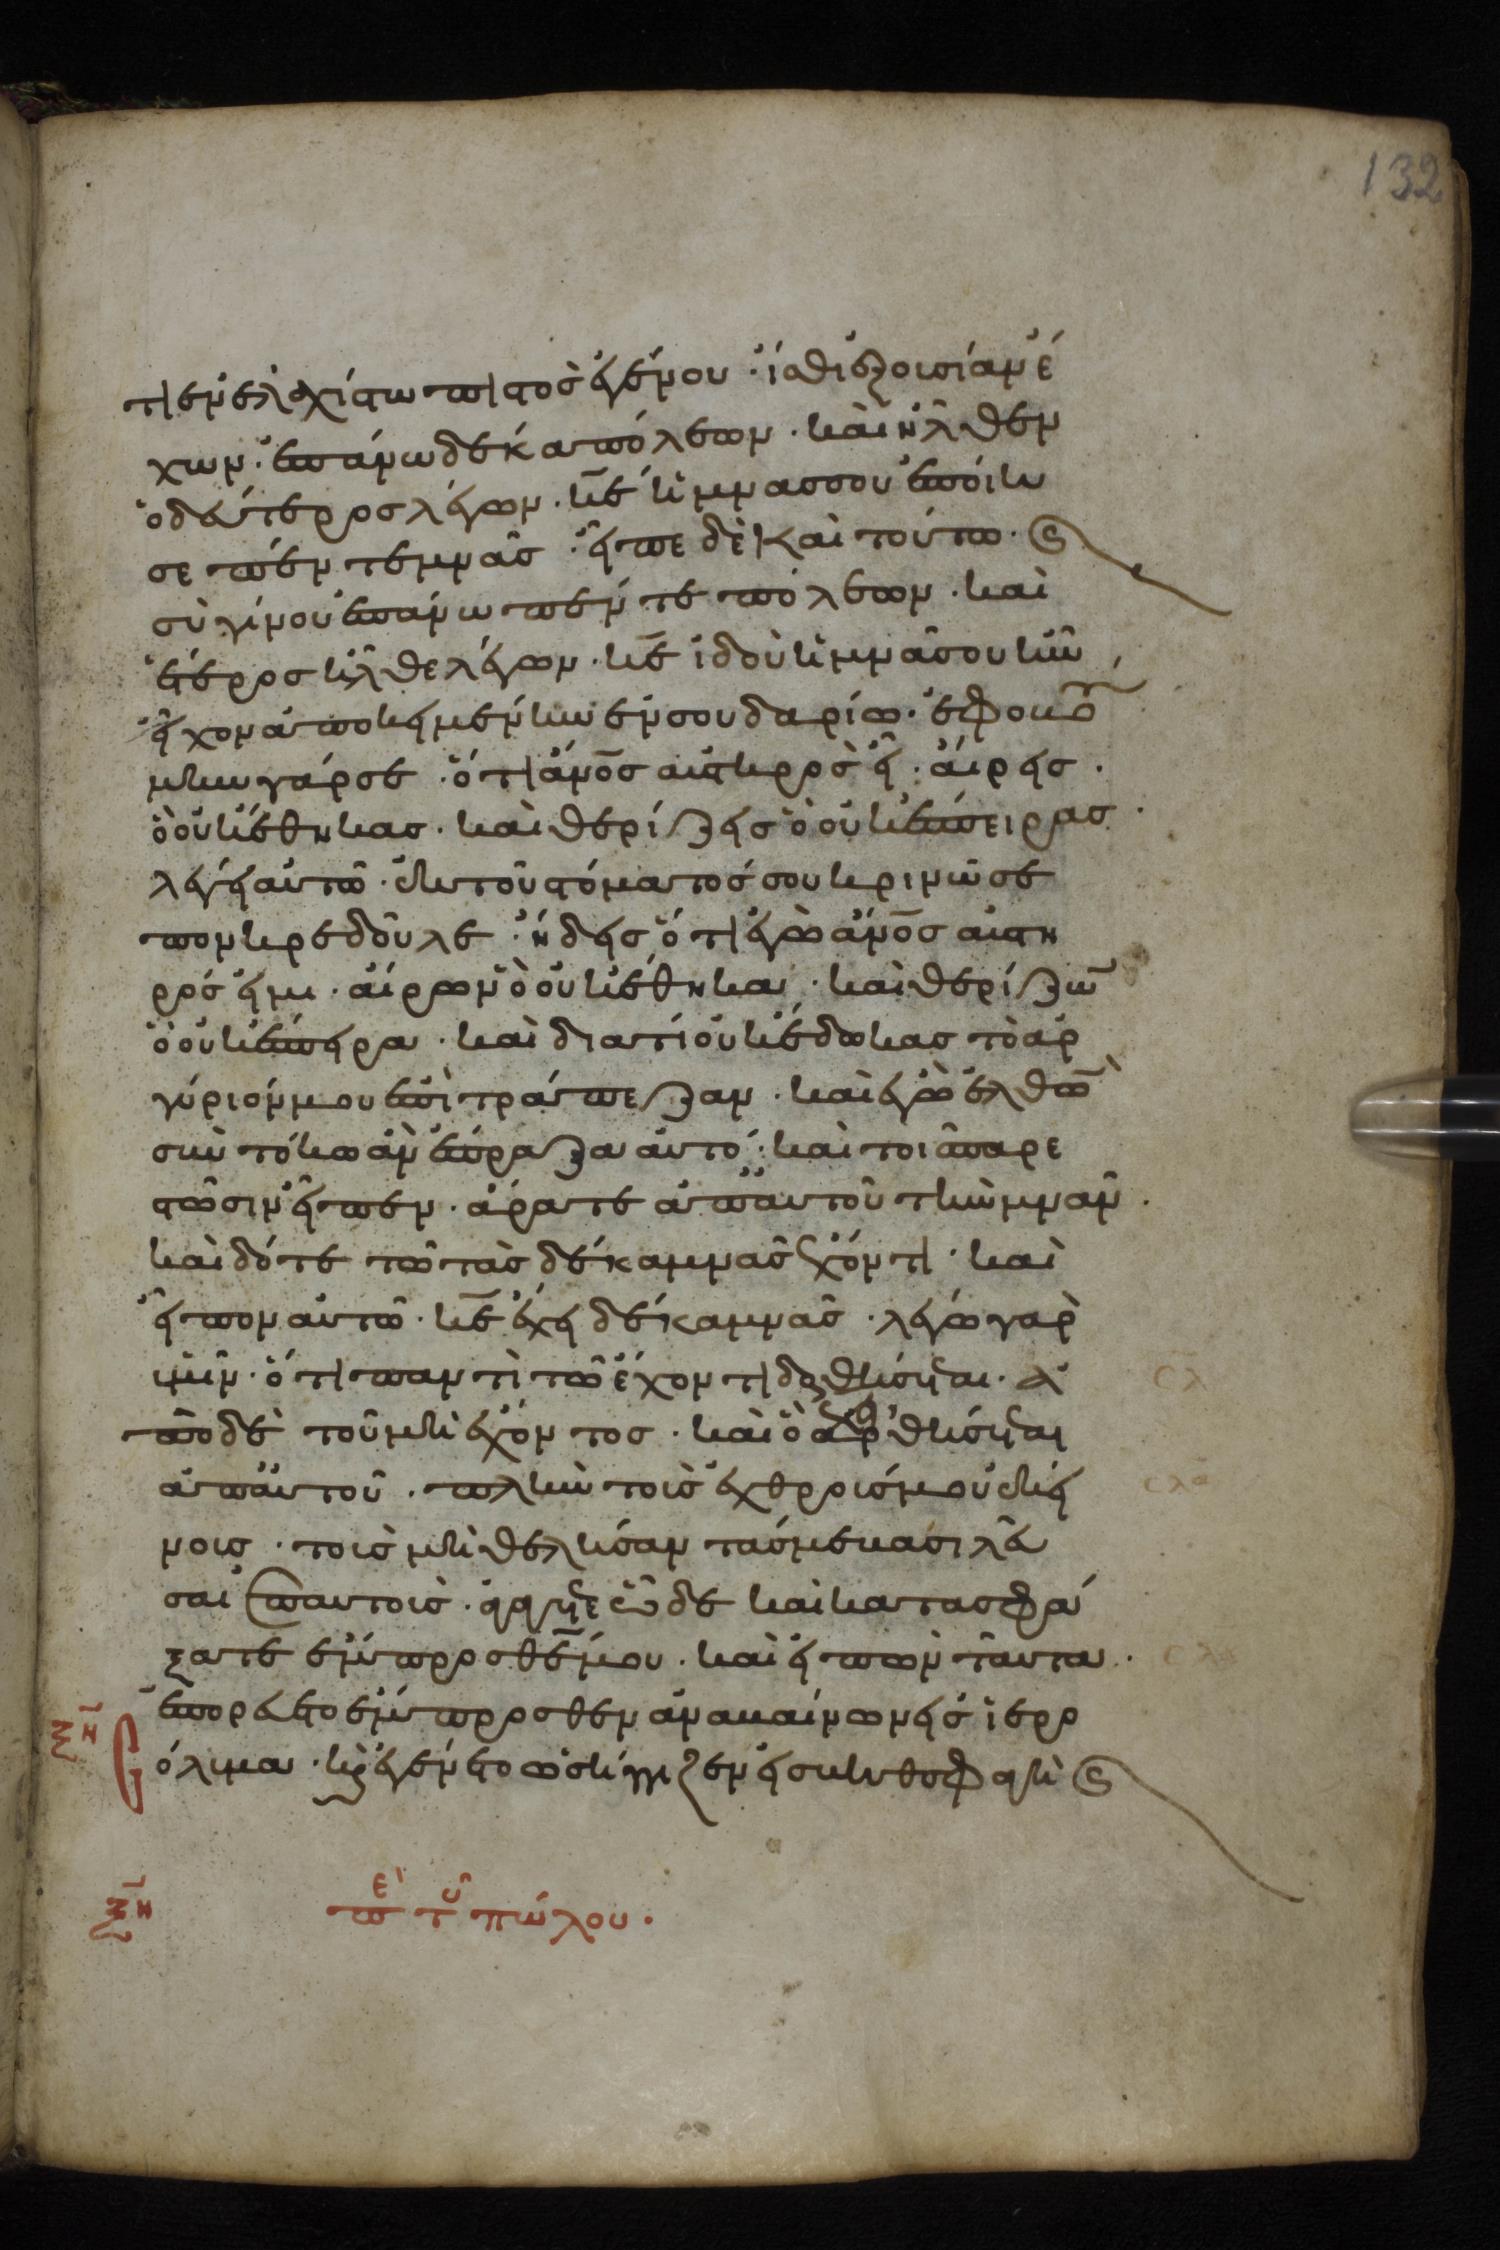 132
τι ἐν ἐλαχίστω πιστὸς ἐγένου· ἴσθι ἐξουσίαν ἔ
χων· ἐπάνω δέκα πόλεων· καὶ ἦλθεν
ὁ δεύτερος λέγων· κ̅ε̅ ἡ μνᾶς σου ἐποίη
σε πέντε μνᾶς· εἶπε δὲ καὶ τούτω·
σὺ γίνου ἐπάνω πέντε πόλεων· καὶ
ἕτερος ἦλθε λέγων· κ̅ε̅ ἰδοὺ ἡ μνᾶ σου ἣν
εἶχον ἀποκειμένην ἐν σουδαρίω· ἐφοβού
μην γάρ σε· ὅτι ἄν̅ο̅ς̅ αυστηρὸς εἶ· αἴρεις·
ὃ οὐκ ἔθηκας· καὶ θερίζεις ὃ οὐκ ἔσπειρας·
λέγει αὐτῶ· ἐκ τοῦ στόματός σου κρινῶ σε
πονηρὲ δοῦλε· ἤδεις ὅτι ἐγὼ ἄν̅ο̅ς̅ αυστη
ρός εἰμι· αἴρων ὃ οὐκ ἔθηκα· καὶ θερίζων
ὃ οὐκ ἔσπειρα· καὶ διατί οὐκ ἔδωκας τὸ ἀρ
γύριόν μου ἐπὶ τράπεζαν· καὶ ἐγὼ ἐλθὼν
σὺν τόκω ἂν ἔπραξα αὐτό· καὶ τοῖς παρε
στῶσιν εἶπεν· ἄρατε ἀπ' αὐτοῦ τὴν μνᾶν·
καὶ δότε τῶ τὰς δέκα μνᾶς ἔχοντι· καὶ
εἶπον αὐτῶ· κ̅ε̅ ἔχει δέκα μνᾶς· λέγω γὰρ
ὑμῖν· ὅτι παντὶ τῶ ἔχοντι δοθήσεται· ἀ
πὸ δὲ τοῦ μὴ ἔχοντος· καὶ ὃ ἔχει ἀρθήσεται
ἀπ' αὐτοῦ· πλὴν τοὺς ἐχθρούς μου ἐκεί
νους· τοὺς μὴ θελήσαντάς με βασιλεῦ
σαι ἐπ' αὐτοὺς· ἀγάγετε ὧδε καὶ κατασφά
ξατε ἔμπροσθέν μου· καὶ εἰπὼν ταῦτα·
ἐπορεύετο ἔμπροσθεν ἀναβαίνων εἰς ἱερο
σόλυμα· καὶ ἐγένετο ὡς ἤγγισεν εἰς βηθσφαγὴ
πε τοῦ πώλου·